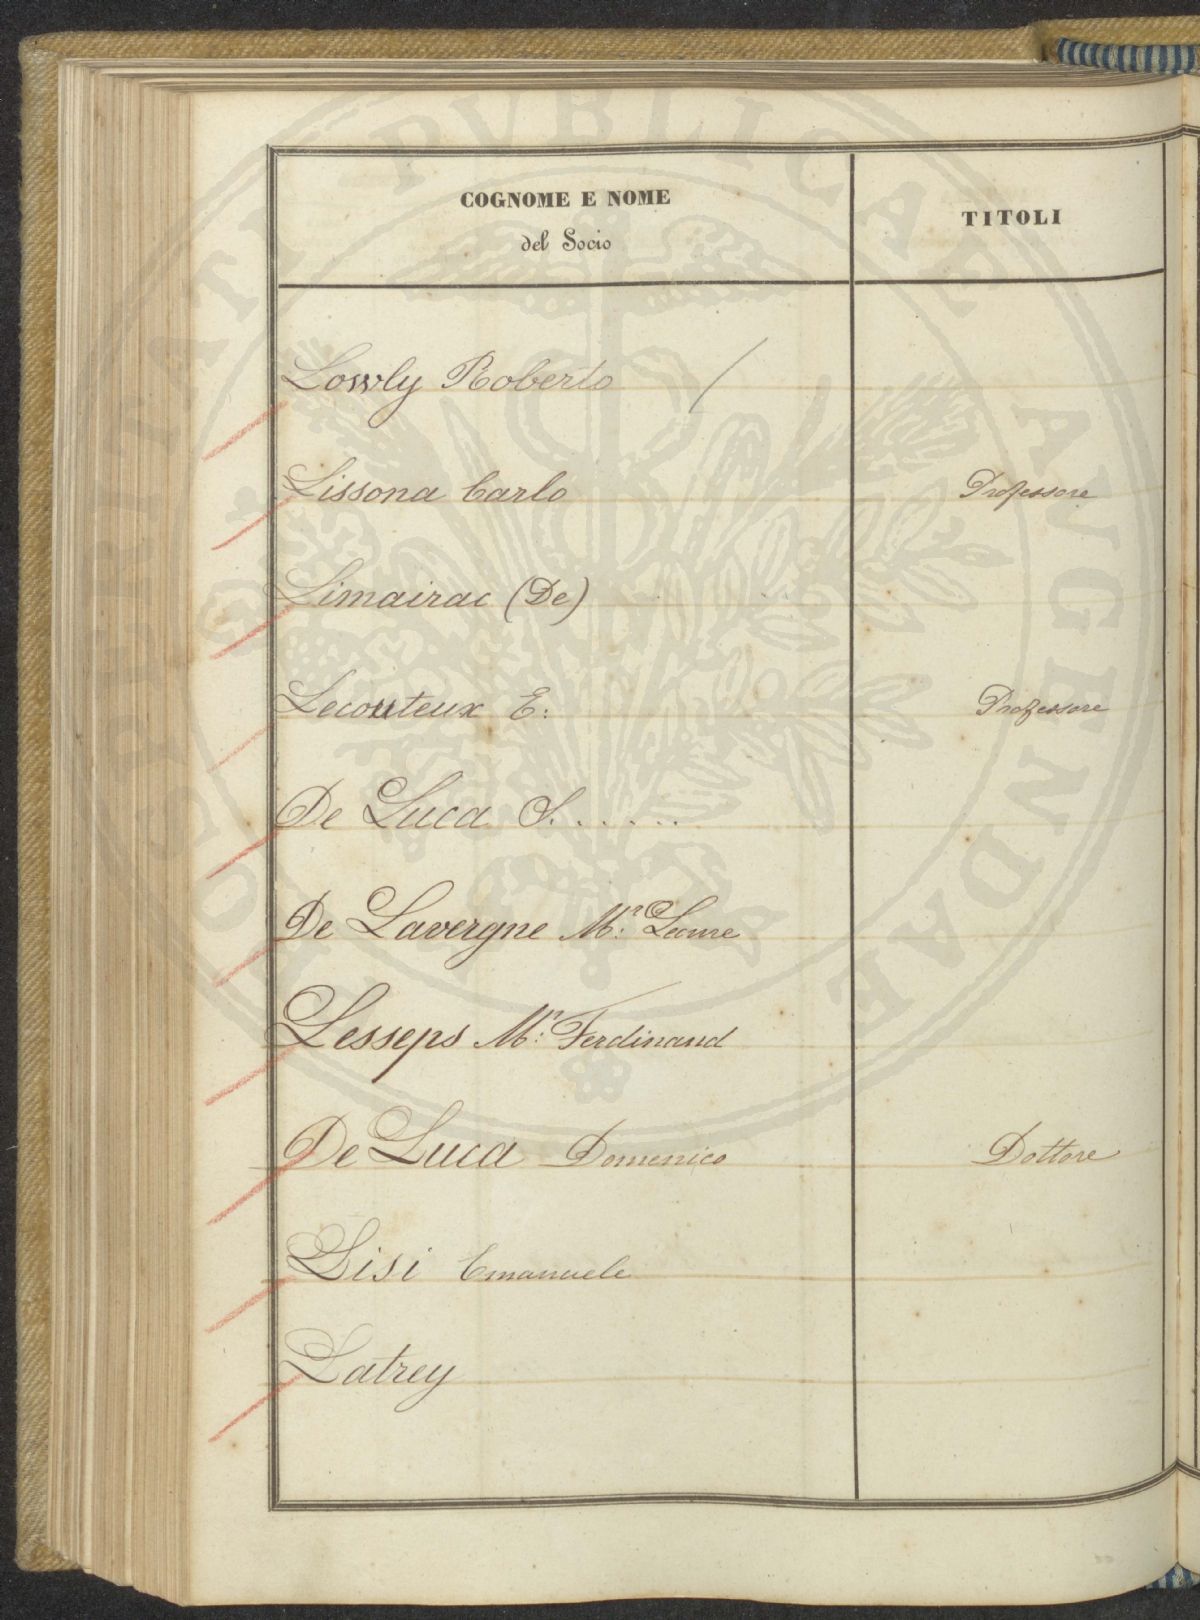 COGNOME E NOME
del Socio
TITOLI
Lowly Roberto /
Lissona Carlo Professore
Limairac (De)
Lecouteux E: Professore
De Luca S. . . . . .
De Lavergne Mr: Leonce
Lesseps Mr: Ferdinand
De Luca Domenico Dottore
Lisi Emanuele
Latrey
PROSPERITATI PVBLICAE AVGENDAE